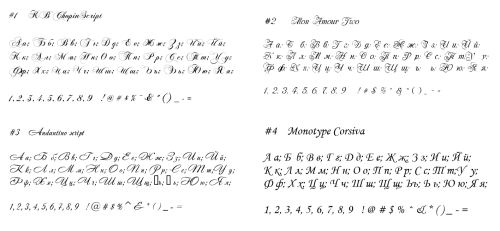 #1 K B ChopinScript
Аа; Бб; Вв; Гг; Дд; Ее; Жж; Зз; Ии; Йй;
Кк; Лл; Мм; Нн; Оо; Пп; Рр; Сс; Тт; Уу;
Фф; Хх; Цц; Чч; Шш; Щщ; Ъъ; Ьь; Юю; Яя;
1, 2, 3, 4, 5, 6, 7, 8, 9 ! @ # $ % ^ & * ( ) _ - =
#2 Mon Amour Two
Аа; Бб; Вв; Гг; Дд; Ее; Жж; Зз; Ии; Йй;
Кк; Лл; Мм; Нн; Оо; Пп; Рр; Сс; Тт; Уу;
Фф; Хх; Цц; Чч; Шш; Щщ; ъ; Юю; Яя;
1, 2, 3, 4, 5, 6, 7, 8, 9 ! # $ % & ^ ( ) _ - =
#3 Andantino script
Аа; Бб; Вв; Гг; Дд; Ее; Жж; Зз; Ии; Йй;
Кк; Лл; Мм; Нн; Оо; Пп; Рр; Сс; Тт; Уу;
Фф; Хх; Цц; Чч; Шш; Щщ; ъ; ь; Юю; Яя;
1, 2, 3, 4, 5, 6, 7, 8, 9 ! @ # $ % ^ & * ( ) _ - =
#4 Monotype Corsiva
Аа; Бб; Вв; Гг; Дд; Ее; Жж; Зз; Ии; Йй;
Кк; Лл; Мм; Нн; Оо; Пп; Рр; Сс; Тт; Уу;
Фф; Хх; Цц; Чч; Шш; Щщ; Ъъ; Ьь; Юю; Яя;
1, 2, 3, 4, 5, 6, 7, 8, 9 ! @ # $ % ^ & * ( ) _ - =